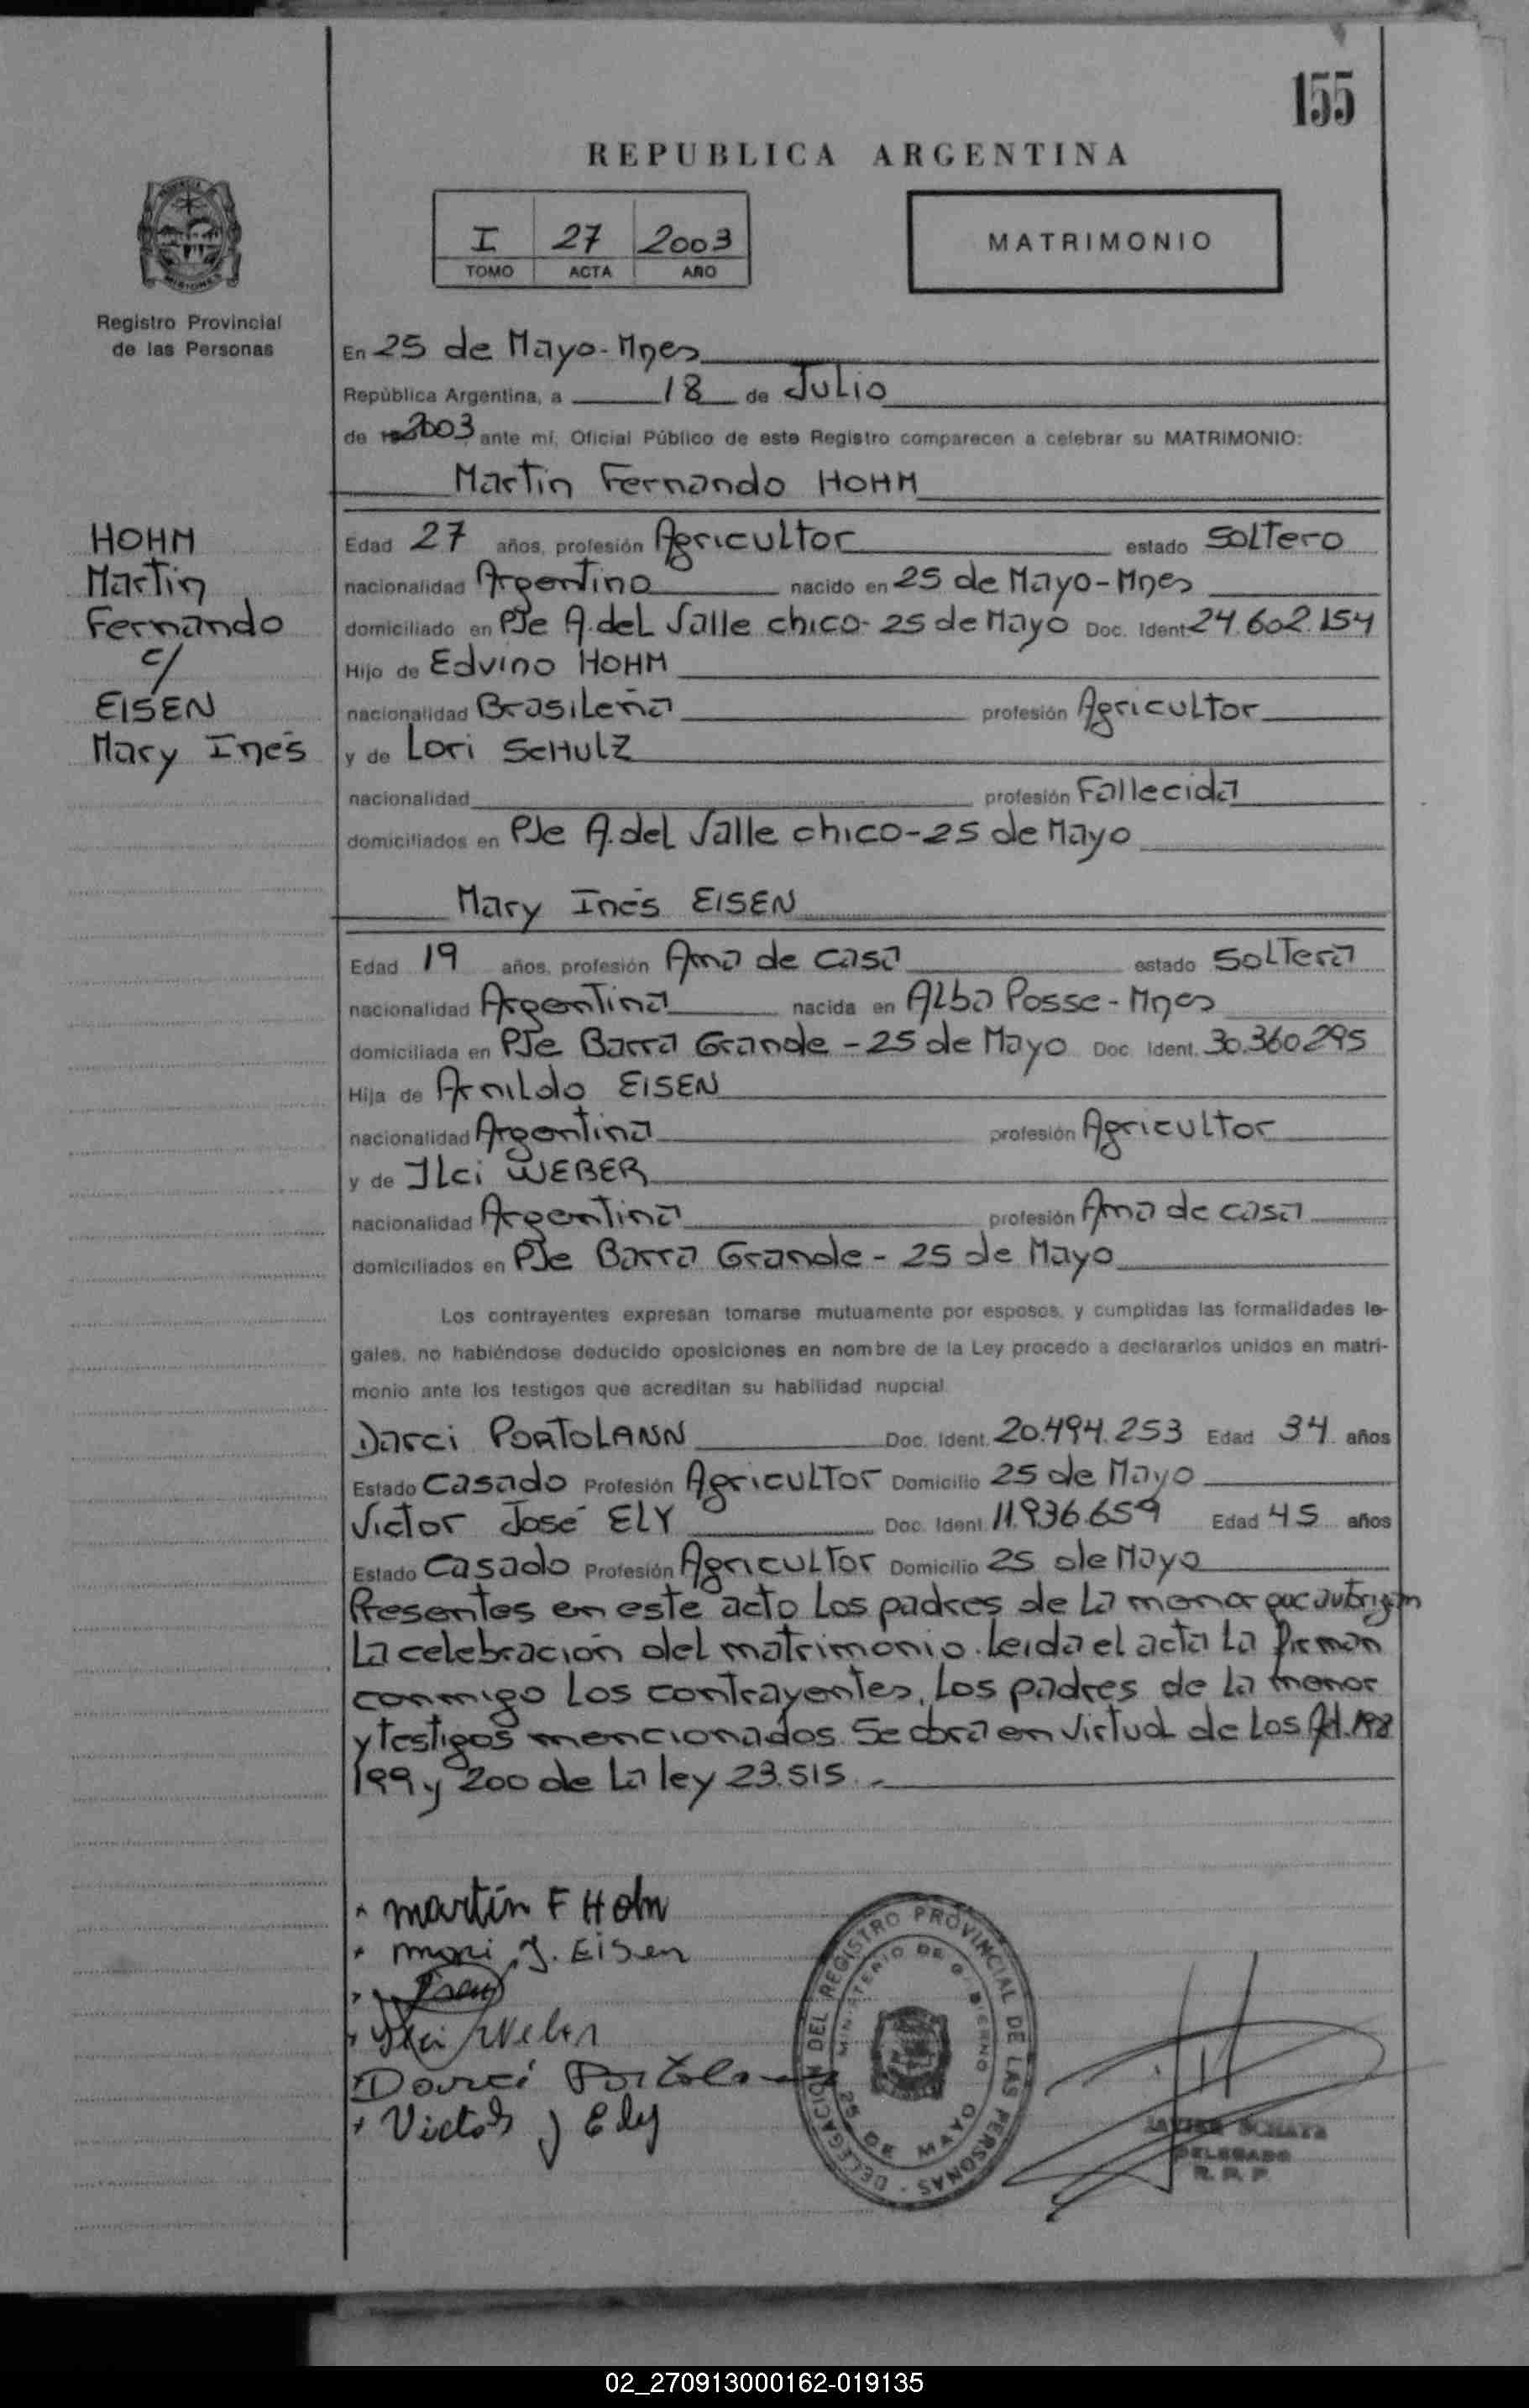 155
REPUBLICA ARGENTINA
I 27 2003
TOMO ACTA AÑO
MATRIMONIO
Registro Provincial
de las Personas
HOHM
Martin
Fernando
c/
EISEN
Mary Inés
En 25 de Mayo-Mnes
República Argentina, a 18 de Julio
de 2003 ante mí, Oficial Público de este Registro comparecen a celebrar su MATRIMONIO:
Martin Fernando HOHM
Edad 27 años, profesión Agricultor estado Soltero
nacionalidad Argentino nacido en 25 de Mayo-Mnes
domiciliado en PJe A. del Valle chico-25 de Mayo Doc. Ident 24.602.154
Hijo de Edvino HOHM
nacionalidad Brasileña profesión Agricultor
y de Lori SCHULZ
nacionalidad profesión Fallecida
domiciliados en PJe A. del Valle chico-25 de Mayo
Mary Inés EISEN
Edad 19 años, profesión Ama de casa estado Soltera
nacionalidad Argentina nacida en Alba Posse-Mnes
domiciliada en PJe Barra Grande-25 de Mayo Doc Ident. 30.360.295
Hija de Arnildo EISEN
nacionalidad Argentina profesión Agricultor
y de Ilci WEBER
nacionalidad Argentina profesión Ama de casa
domiciliados en PJe Barra Grande-25 de Mayo
Los contrayentes expresan tomarse mutuamente por esposos, y cumplidas las formalidades le-
gales, no habiéndose deducido oposiciones en nombre de la Ley procedo a declararlos unidos en matri-
monio ante los testigos que acreditan su habilidad nupcial
Darci PORTOLANN Doc. Ident. 20.494.253 Edad 34 años
Estado Casado Profesión Agricultor Domicilio 25 de Mayo
Victor José ELY Doc. Ident. 11.936.659 Edad 45 años
Estado Casado Profesión Agricultor Domicilio 25 de Mayo
Presentes en este acto los padres de la menor que autorizan
la celebración del matrimonio. Leida el acta la firman
conmigo los contrayentes, los padres de la menor
y testigos mencionados. Se obra en virtud de los Art. 198
199 y 200 de la ley 23.515.-
martín F Hohn
mari J. Eisen
Weber
Darci Portola
Victor J Ely
DELEGACION DEL REGISTRO PROVINCIAL DE LAS PERSONAS
MINISTERIO DE GOBIERNO
25 DE MAYO
JAVIER SCHATZ
DELEGADO
R. P. P.
02_270913000162-019135